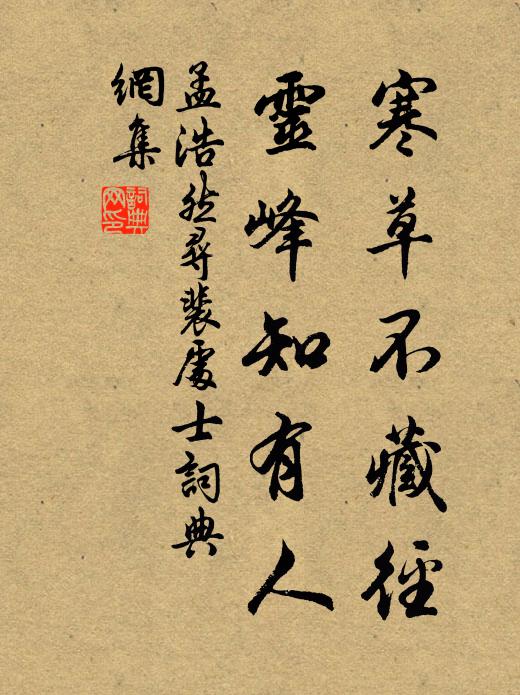 寒草不藏徑
靈峰知有人
孟浩然尋裴處士詞典
網集
詞典网印